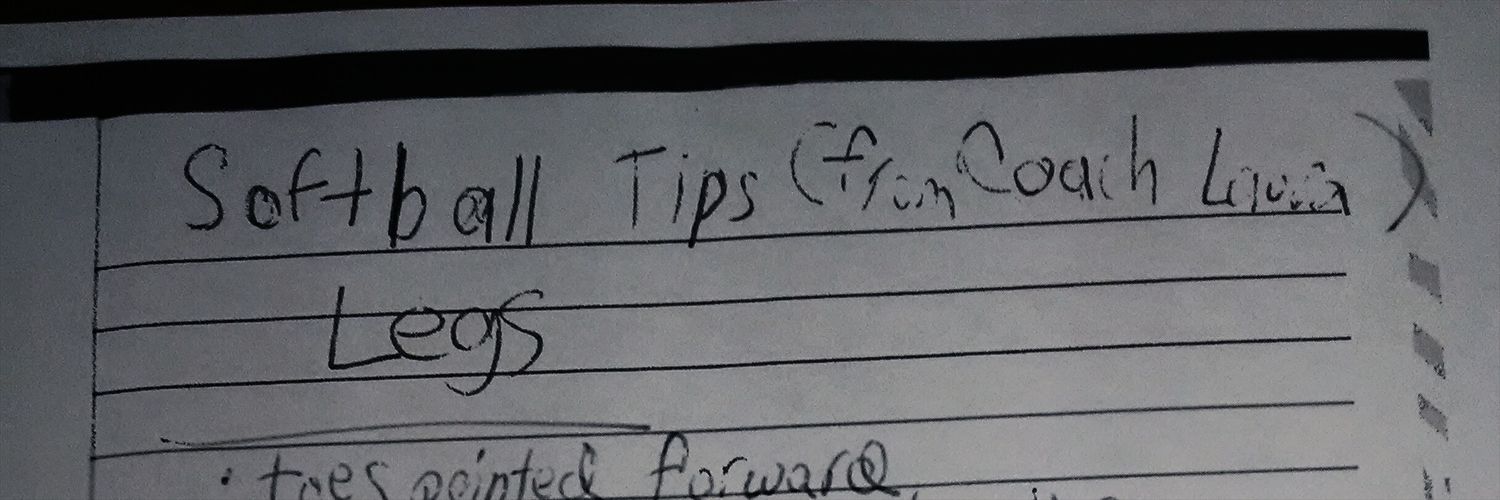 Softball Tips (from Coach Laura)
Legs
• toes pointed forward